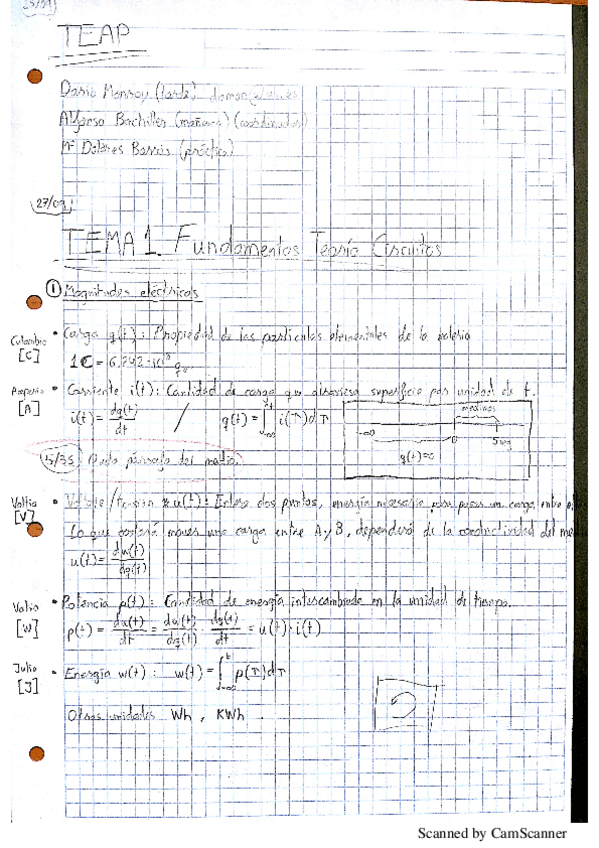 TEAP
Darío Monroy (tarde)
Alfonso Bachiller (mañana) (coordinador)
Mª Dolores (práctica)
27/09
TEMA 1. Fundamentos Teoría Circuitos
① Magnitudes eléctricas
Culombio [C] • Carga q(t): Propiedad de las partículas elementales de la materia
1C = 6,242·10
Amperio [A] • Corriente i(t): Cantidad de carga que atraviesa superficie por unidad de t.
i(t) = dq(t)/dt / q(t) = ∫ i(τ)dτ
medimos
-∞ 0 5seg
q(t)=0
5/35 Punto del medio.
Voltio [V] • Voltaje / Tensión u(t): Entre dos puntos, energía necesaria para pasar un carga entre
Lo que costará mover una carga entre A y B, dependerá de la conductividad del
u(t) = dw(t)/dq(t)
Vatio [W] • Potencia p(t): Cantidad de energía intercambiada en la unidad de tiempo.
p(t) = dw(t)/dt = dw(t)/dq(t) · dq(t)/dt = u(t)·i(t)
Julio [J] • Energía w(t): w(t) = ∫ p(τ)dτ
Otras unidades Wh, KWh.
Scanned by CamScanner